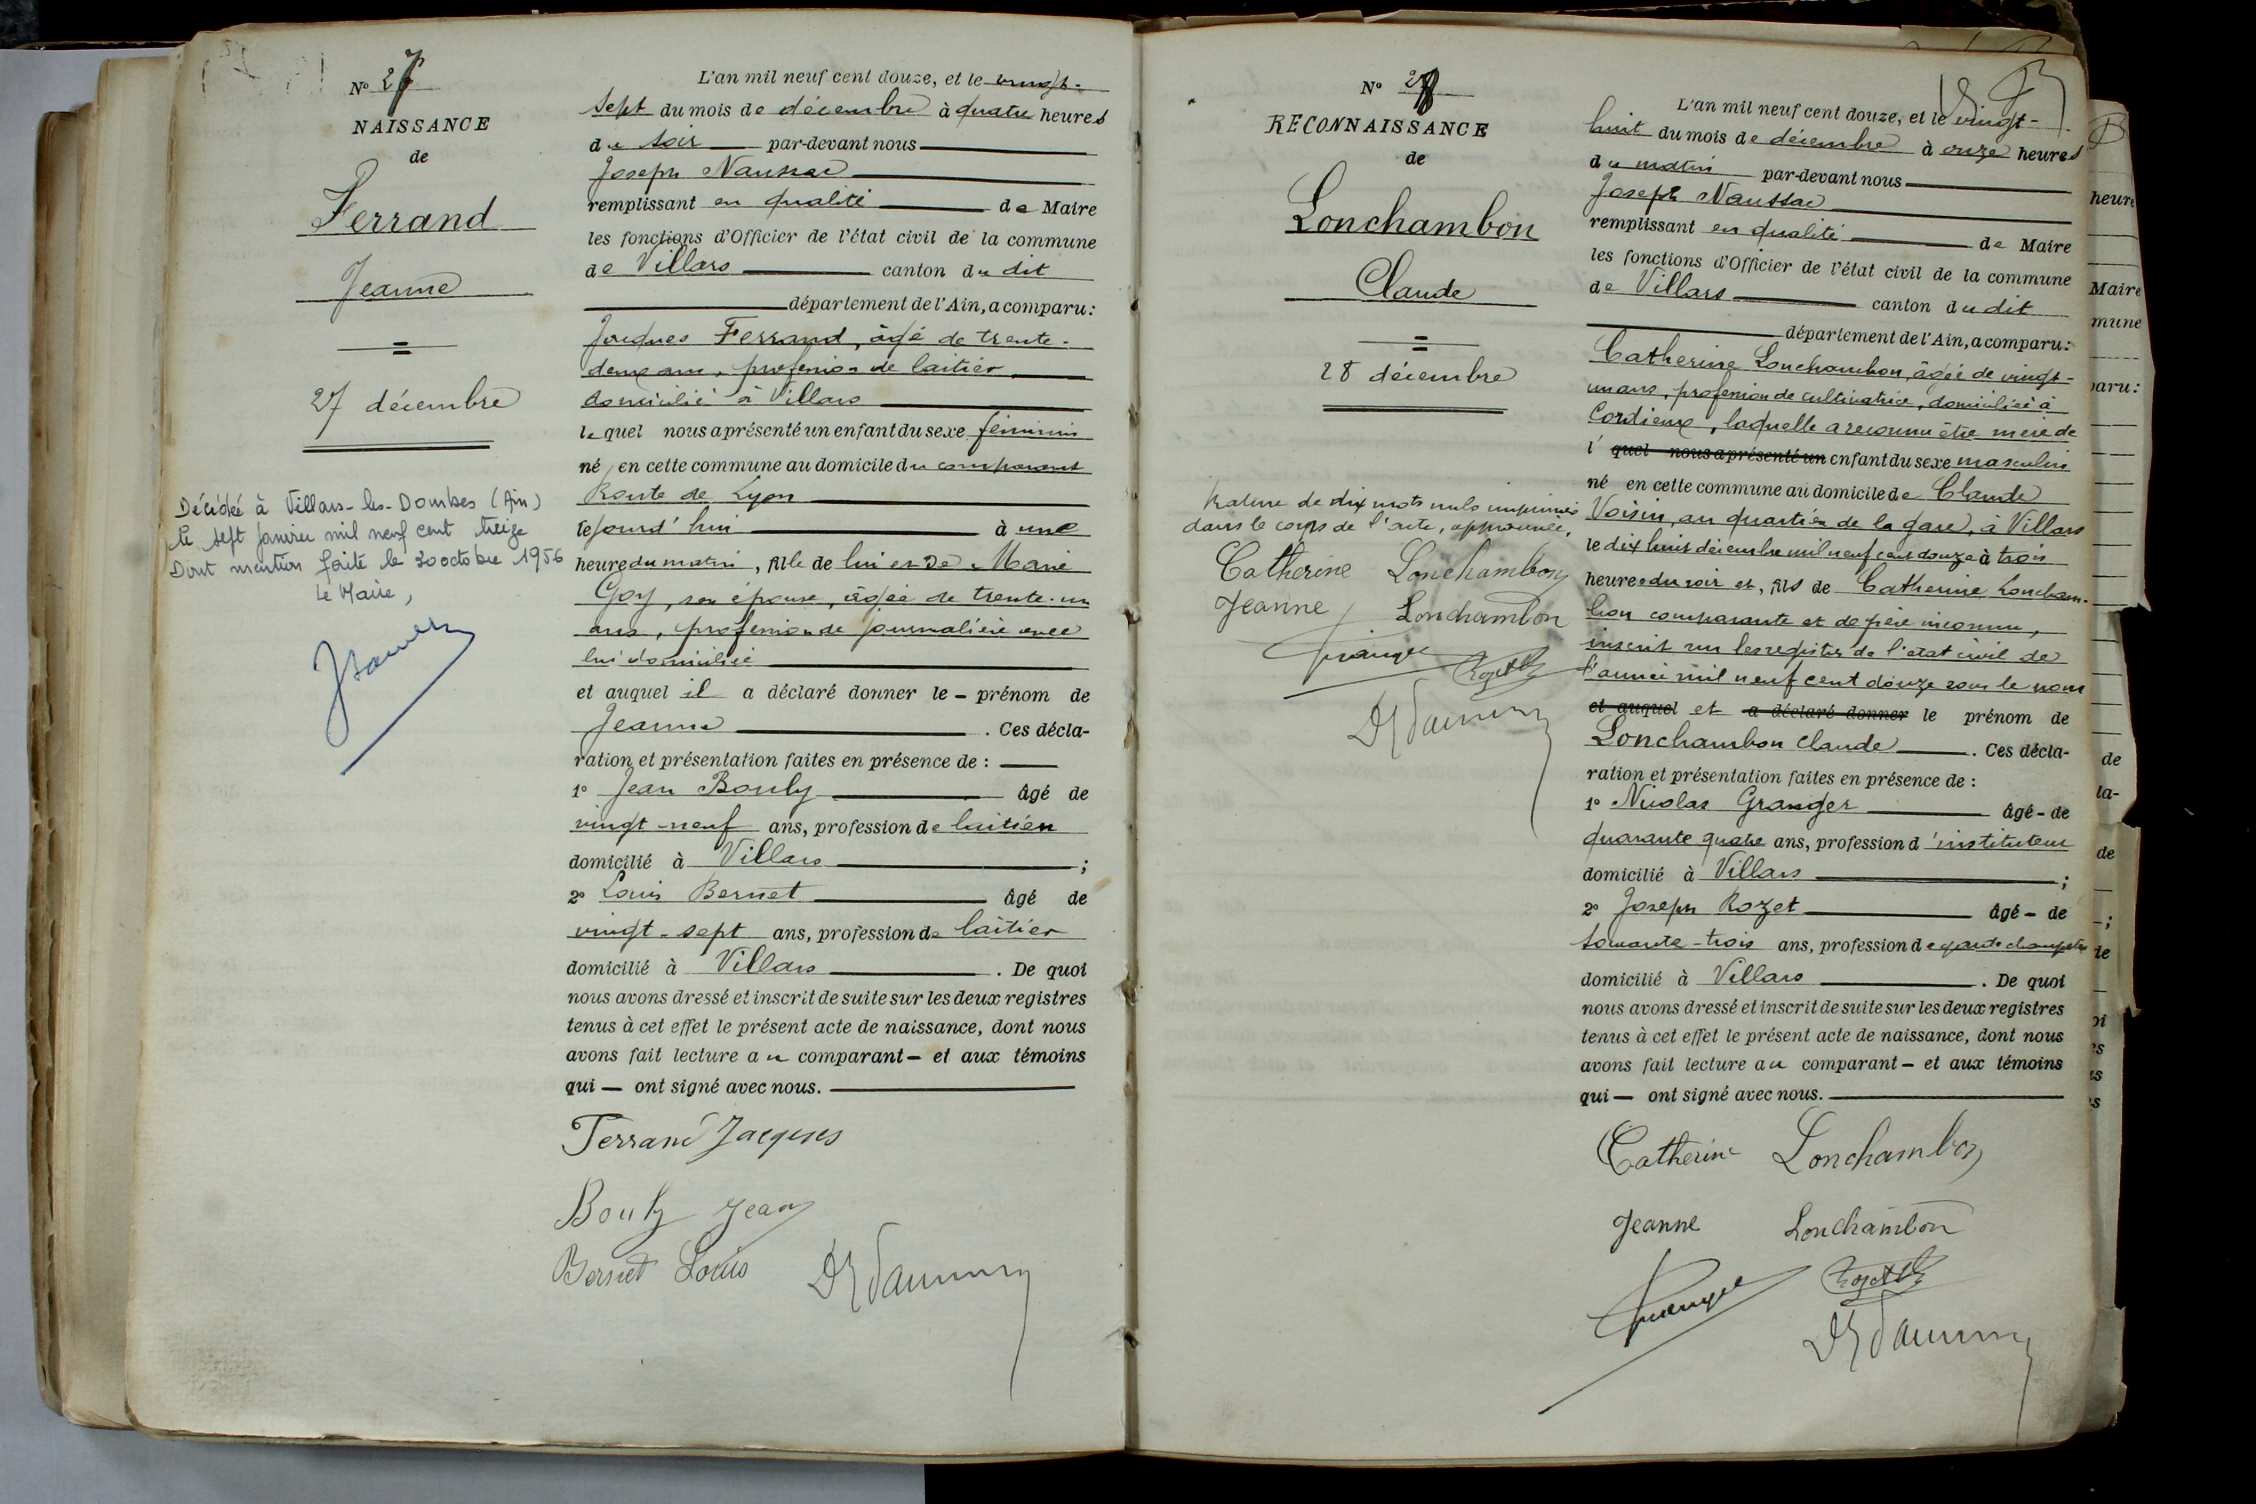 N° 27
NAISSANCE
de
Ferrand
Jeanne
27 décembre
Décédée à Villars-les-Dombes (Ain)
le sept janvier mil neuf cent treize
Dont mention faite le 30 octobre 1956
Le Maire,
L'an mil neuf cent douze, et le vingt-
sept du mois de décembre à quatre heures
du soir par-devant nous
Joseph Naussac
remplissant en qualité de Maire
les fonctions d'Officier de l'état civil de la commune
de Villars canton du dit
département de l'Ain, a comparu:
Jacques Ferrand, âgé de trente-
deux ans, profession de laitier,
domicilié à Villars
lequel nous a présenté un enfant du sexe féminin
né, en cette commune au domicile du comparant
Route de Lyon
le jourd'hui à une
heure du matin, fille de lui et de Marie
Goy, son épouse, âgée de trente-un
ans, profession de journalière avec
lui domiciliée
et auquel il a déclaré donner le - prénom de
Jeanne . Ces décla-
ration et présentation faites en présence de :
1° Jean Bouly âgé de
vingt-neuf ans, profession de laitier
domicilié à Villars ;
2° Louis Bernet âgé de
vingt-sept ans, profession de laitier
domicilié à Villars . De quoi
nous avons dressé et inscrit de suite sur les deux registres
tenus à cet effet le présent acte de naissance, dont nous
avons fait lecture au comparant - et aux témoins
qui — ont signé avec nous.
Ferrand Jacques
Bouly Jean
Bernet Louis
N° 28
RECONNAISSANCE
de
Lonchambon
Claude
28 décembre
Rature de dix mots nuls imprimés
dans le corps de l'acte, approuvée.
Catherine Lonchambon
Jeanne Lonchambon
L'an mil neuf cent douze, et le vingt-
huit du mois de décembre à onze heures
du matin par-devant nous
Joseph Naussac
remplissant en qualité de Maire
les fonctions d'Officier de l'état civil de la commune
de Villars canton du dit
département de l'Ain, a comparu:
Catherine Lonchambon, âgée de vingt-
un ans, profession de cultivatrice, domiciliée à
Cordieux, laquelle a reconnu être mère de
l'quel nous a présenté un enfant du sexe masculin
né en cette commune au domicile de Claude
Voisin, au quartier de la gare, à Villars
le dix huit décembre mil neuf cent douze à trois
heures du soir et, fils de Catherine Loncham-
bon comparante et de père inconnu,
inscrit sur les registres de l'état civil de
l'année mil neuf cent douze sous le nom
et auquel et a déclaré donner le prénom de
Lonchambon Claude . Ces décla-
ration et présentation faites en présence de :
1° Nicolas Granger âgé - de
quarante quatre ans, profession d'instituteur
domicilié à Villars ;
2° Joseph Rozet âgé - de
soixante-trois ans, profession de garde champêtre
domicilié à Villars . De quoi
nous avons dressé et inscrit de suite sur les deux registres
tenus à cet effet le présent acte de naissance, dont nous
avons fait lecture au comparant - et aux témoins
qui — ont signé avec nous.
Catherine Lonchambon
Jeanne Lonchambon
Granger
heure
Maire
mune
paru:
de
la-
de
;
de
oi
es
us
es